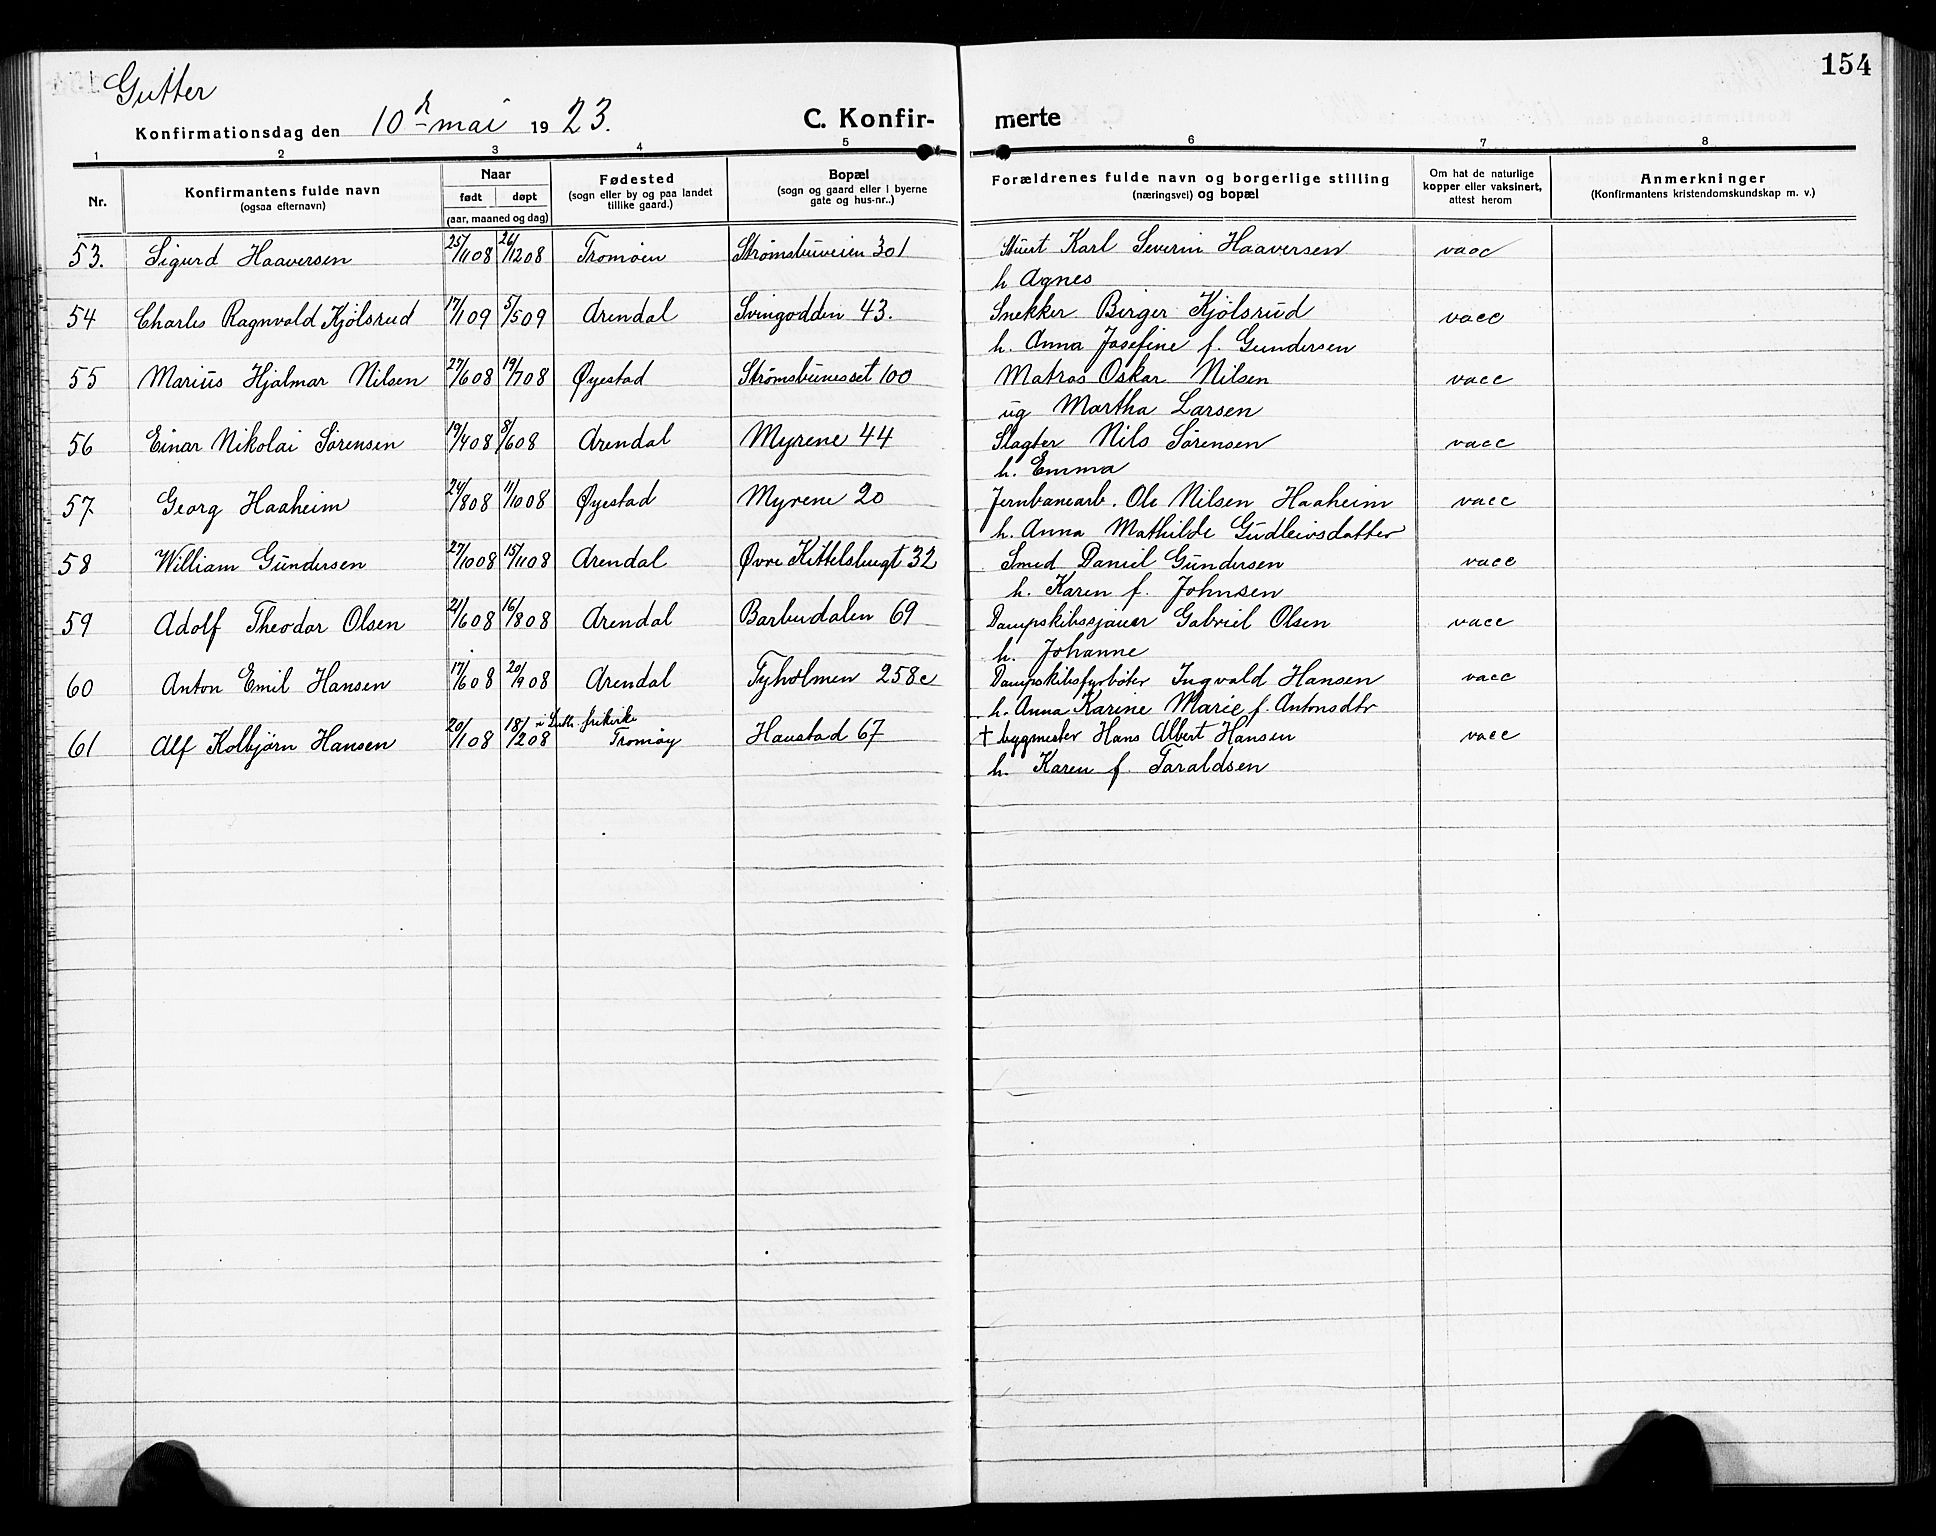 154
Gutter
Konfirmationsdag den 10de mai 1923.
C. Konfir-
merte
1 2 3 4 5 6 7 8
Nr.
Konfirmantens fulde navn
(ogsaa efternavn)
Naar
født døpt
(aar, maaned og dag)
Fødested
(sogn eller by og paa landet
tillike gaard.)
Bopæl
(sogn og gaard eller i byerne
gate og hus-nr..)
Forældrenes fulde navn og borgerlige stilling
(næringsvei) og bopæl
Om hat de naturlige
kopper eller vaksinert,
attest herom
Anmerkninger
(Konfirmantens kristendomskundskap m. v.)
53. Sigurd Haaversen 25/11 08 26/12 08 Tromøen Strømsbuveien 301 Stuert Karl Severin Haaversen vacc
h Agnes
54 Charles Ragnvald Kjölsrud 17/1 09 5/5 09 Arendal Svingodden 43. Snekker Birger Kjölsrud vacc
h. Anna Josefine f. Gundersen
55 Marius Hjalmar Nilsen 27/6 08 19/7 08 Øyestad Strømsbunesset 100 Matros Oskar Nilsen vacc
ug Martha Larsen
56 Einar Nikolai Sörensen 19/4 08 8/6 08 Arendal Myrene 44 Slagter Nils Sörensen vacc
h. Emma
57 Georg Haaheim 24/8 08 11/10 08 Øyestad Myrene 20 Jernbanearb. Ole Nilsen Haaheim vacc
h. Anna Mathilde Gudleivsdatter
58 William Gundersen 27/10 08 15/11 08 Arendal Øvre Kittelsbugt 32 Smed Daniel Gundersen vacc
h. Karen f. Johnsen
59 Adolf Theodor Olsen 21/6 08 16/8 08 Arendal Barbudalen 69 Dampskibssjauer Gabriel Olsen vacc
h. Johanne
60 Anton Emil Hansen 17/6 08 20/9 08 Arendal Tyholmen 258c Dampskibsfyrböter Ingvald Hansen vacc
h. Anna Karine Marie f. Antonsdtr
61 Alf Kolbjörn Hansen 20/1 08 18/12 08 i Luth. frikirke Tromøy Havstad 67 † bygmester Hans Albert Hansen vacc
h. Karen f. Taraldsen